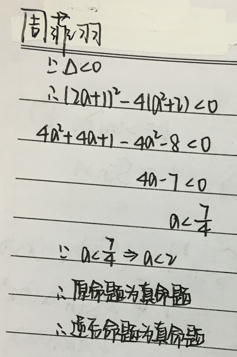 周菲羽
∵Δ<0
∴(2a+1)²-4(a²+2)<0
4a²+4a+1-4a²-8<0
4a-7<0
a<7/4
∵ a<7/4 ⇒ a<2
∴原命题为真命题
∴逆否命题为真命题